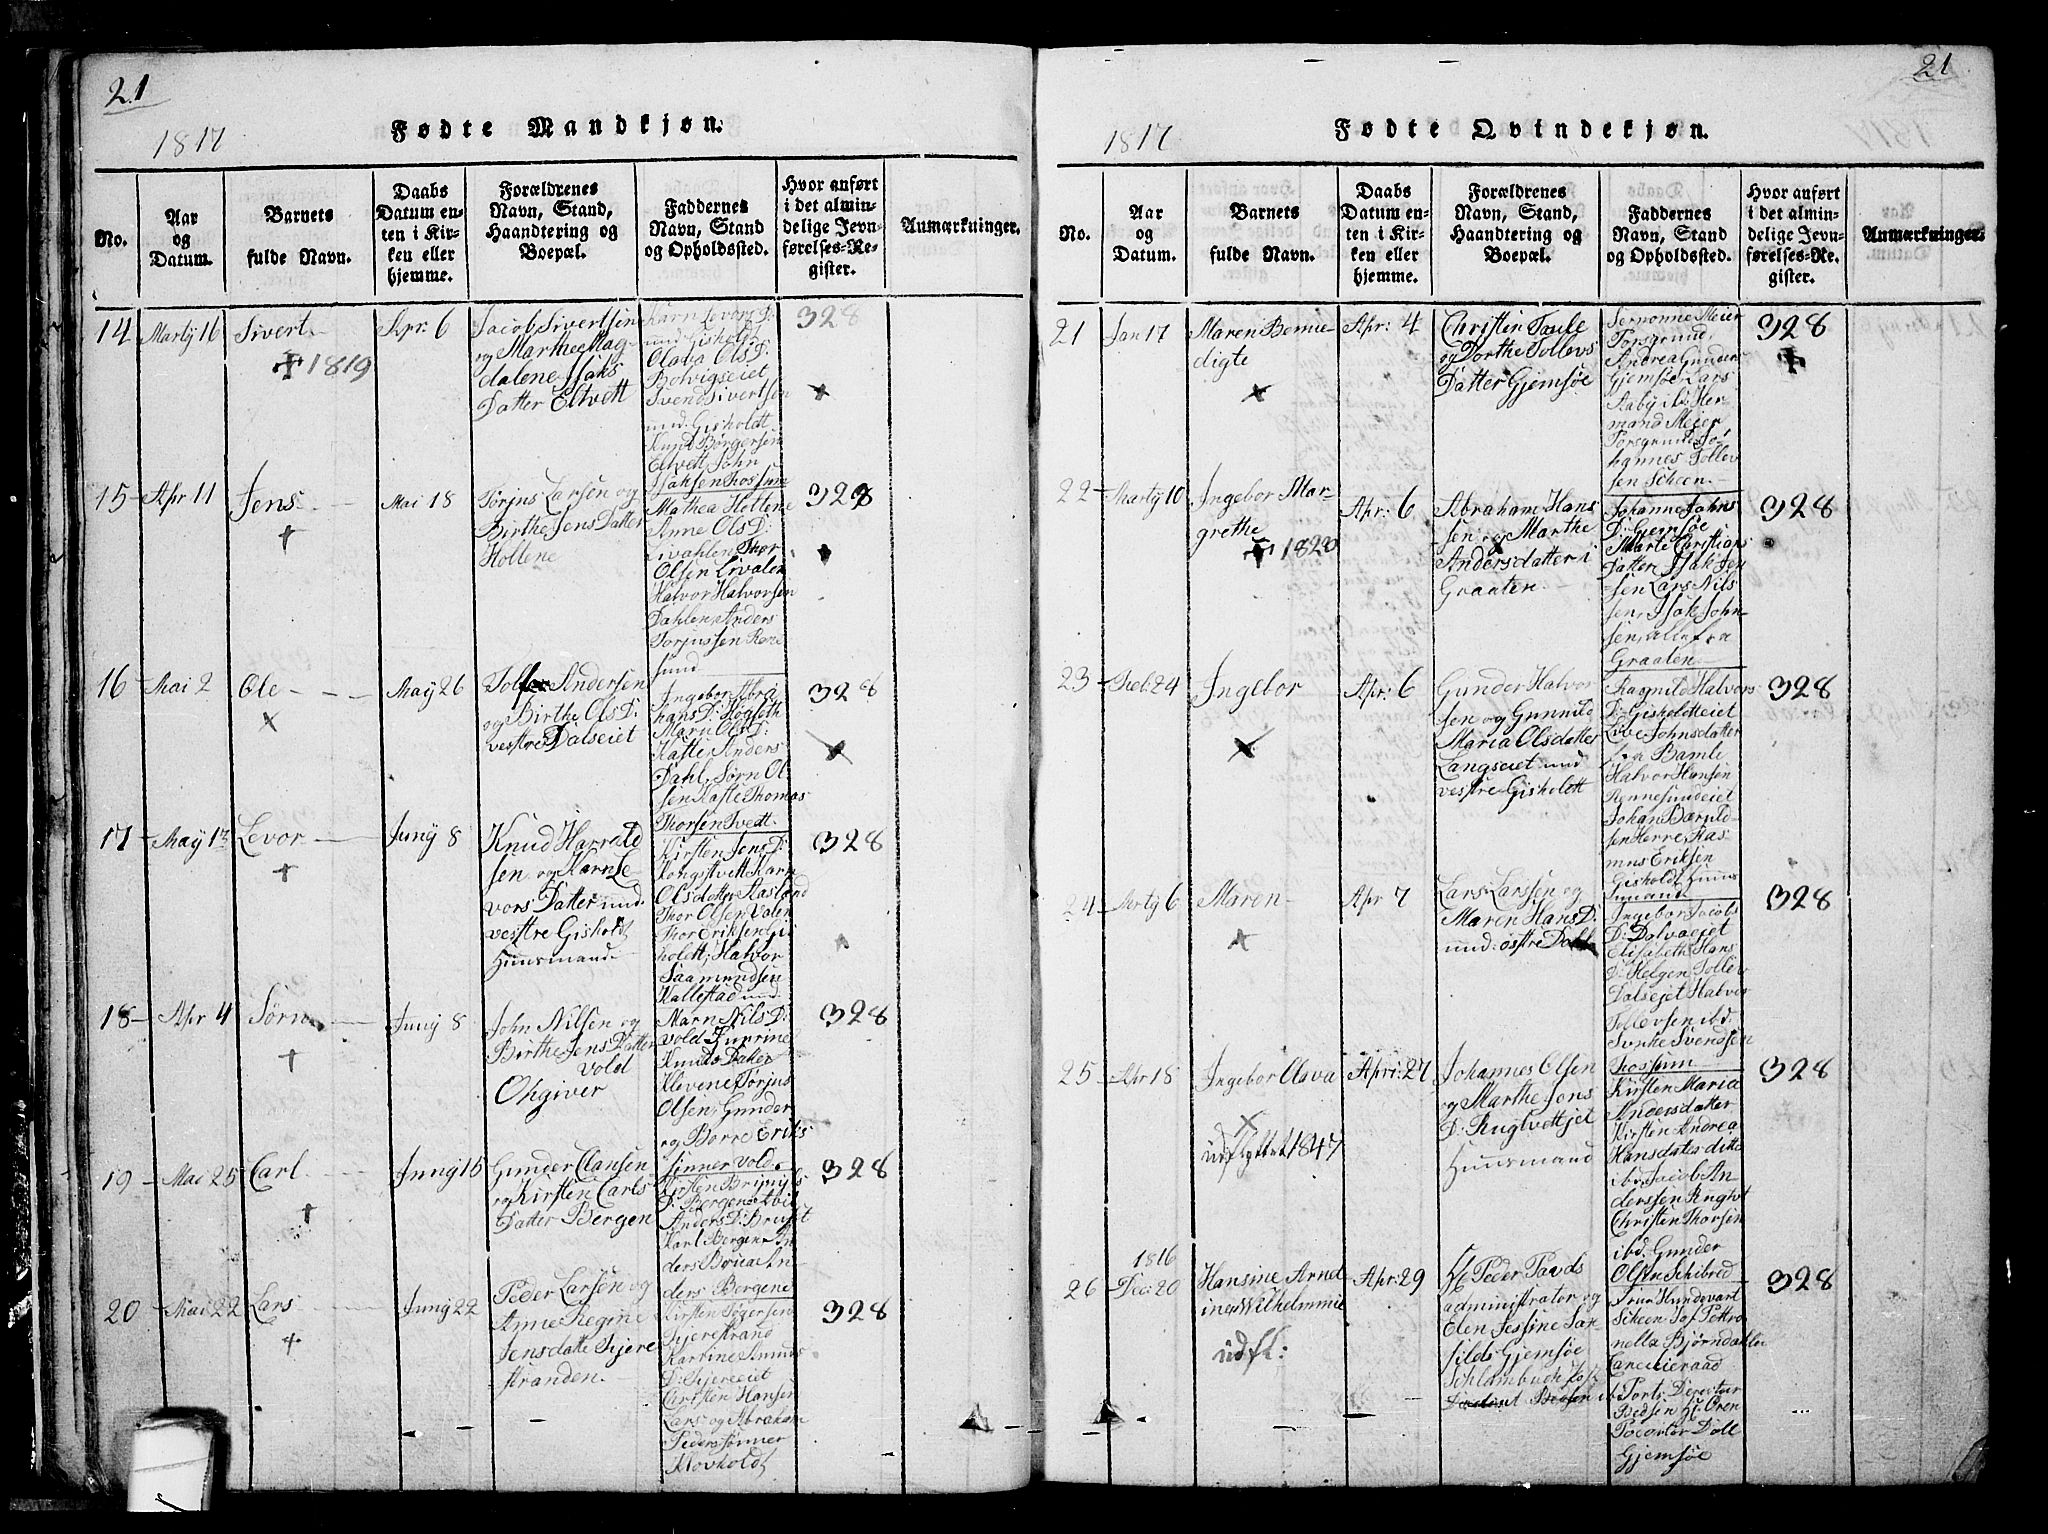 21
1817
Fødte Mandkjøn.
No.
Aar
og
Datum.
Barnets
fulde Navn.
Daabs
Datum en-
ten i Kir-
ken eller
hjemme.
Forældrenes
Navn, Stand,
Haandtering og
Boepæl.
Faddernes
Navn, Stand
og Opholdssted.
Hvor anført
i det almin-
delige Jevn-
førelses-Re-
gister.
Anmærkninger.
14
Marty 16
Sivert
1819
Apr: 6
Jacob Sivertsen
og Marthe Mag-
dalene Isaks
Datter Eltvett
Karn Levors D:
und. Gisholt
Olava Ols D:
Bolvigseiet
Svend Sivertsen
und. Gisholdt
Knud Børgersen
Eltvett John
Isaksen Fossum
328
15
Apr 11
Jens
Mai 18
Torjus Larsen og
Birthe Jens Datter
Holtene
Mathea Holtene
Anne Ols D:
Livahlen Thor
Olsen Livalen
Halvor Halvorsen
Dahlen, Anders
Torjussen Røne
sund
328
16
Mai 2
Ole
May 26
Andersen
og Birthe Ols D:
vestre Dalseiet
Ingebor Abra
hans D:
Marn Ols D:
Anders
Dahl, Sørn Ol
sen Kaste Thomas
Thorsen Tvett
328
17
May 13
Levor
Juny 8
Knud Harrald
sen og Karn Le
vors Datter und.
vestre Gisholt
Huusmand
Kirsten Jens D:
Kongstvett Karn
Olsdatter Aasland
Thor Olsen Valen
Thor Eriksen Gis
holdt, Halvor
Saamundsen
Kallestad und.
328
18
Apr 4
Sørn
Juny 8
John Nilsen og
Birthe Jens Datter
Vold
Opgiver
Marn Nils D:
vold
Knuds Datter
Klevene, Torjus
Olsen, Gunder
og Børre Eriks
sønner Vold
328
19
Mai 25
Carl
Juny 15
Gunder Clausen
og Kirsten Carls
Datter Bergen
D: Bergene
Anders D:
Karl Bergene An
ders An
ders Bergene
328
20
Mai 22
Lars
Juny 22
Peder Larsen og
Anne Regine
Jensdatter Tjere
stranden
Kirsten
Tjerestrand
Karline
D: Tjereeiet
Carsten Hansen
Lars og Abraham
Peders sønner
Klovholdt
328
21
1817
Fødte Qvindekjøn.
No.
Aar
og
Datum.
Barnets
fulde Navn.
Daabs
Datum en-
ten i Kir-
ken eller
hjemme.
Forældrenes
Navn, Stand,
Haandtering og
Boepæl.
Faddernes
Navn, Stand
og Opholdssted.
Hvor anført
i det almin-
delige Jevn-
førelses-Re-
gister.
Anmærkninger.
21
Jan 17
Maren Benne
digte
Apr: 4
Christen Taule
og Dorthe Tollevs
Datter Gjemsøe
Meier
Porsgrund
Andrea Gunders
Gjemsøe Lars
Aaby ibd. Her
mand Meier
Porsgrund Jo
hannes Tollev
sen Scheen
328
22
Marty 10
Ingebor Mar-
grethe
1820
Apr: 6
Abraham Hans
sen og Marthe
Andersdatter i
Graaten
Johanne Johns
D: Gjemsøe
Marte Christians
Datter Isak Jen
sen Lars Nils
sen, Isak John
sen, alle fra
Graaten
328
23
Feb. 24
Ingebor
Apr: 6
Gunder Halvor
sen og Gunnild
Maria Olsdatter
Langseiet und
vestre Gisholdt
Ragnild Halvors
D: Gisholdteiet
Live Johnsdatter
fra Bamle
Halvor Hansen
Rønnesundeiet
Johan Bærulf
sen Herre, Ras
mus Eriksen
Gisholdt Huus
mand
328
24
Marty 6
Maren
Apr 7
Lars Larsen og
Maren Hans D:
und: østre
Ingebor Jacobs
D: Dalvaeiet
Elisabeth Hans
D: Helgen Tollev
Dalsejet Halvor
Tollevsen ibd:
Svenke Svendsen
Fossum
328
25
Apr 18
Ingebor Olava
udflyttet 1847
Apri: 27
Johannes Olsen
og Marthe Jens
D: Rugtvettjet
Huusmand
Kirsten Maria
Andersdatter
Kirsten Andrea
Hansdatter ditte
ibd Jacob An
derssen Rugtvt
Christen Thorsen
ibd. Gunder
Olsen Schibred
328
26
1816
Dec 20
Hansine Arnd
ine Wilhelmine
udfl:
Apr: 29
Hr Peder Pavds
administrator og
Elen Jessine
Gjemsøe
Frue Hundevart
Scheen Jof Petro
nella Bjørndahlen
Cancelieraad
Forts Derectour
Bedsen Hr: Oren
Dall
Gjemsøe
328